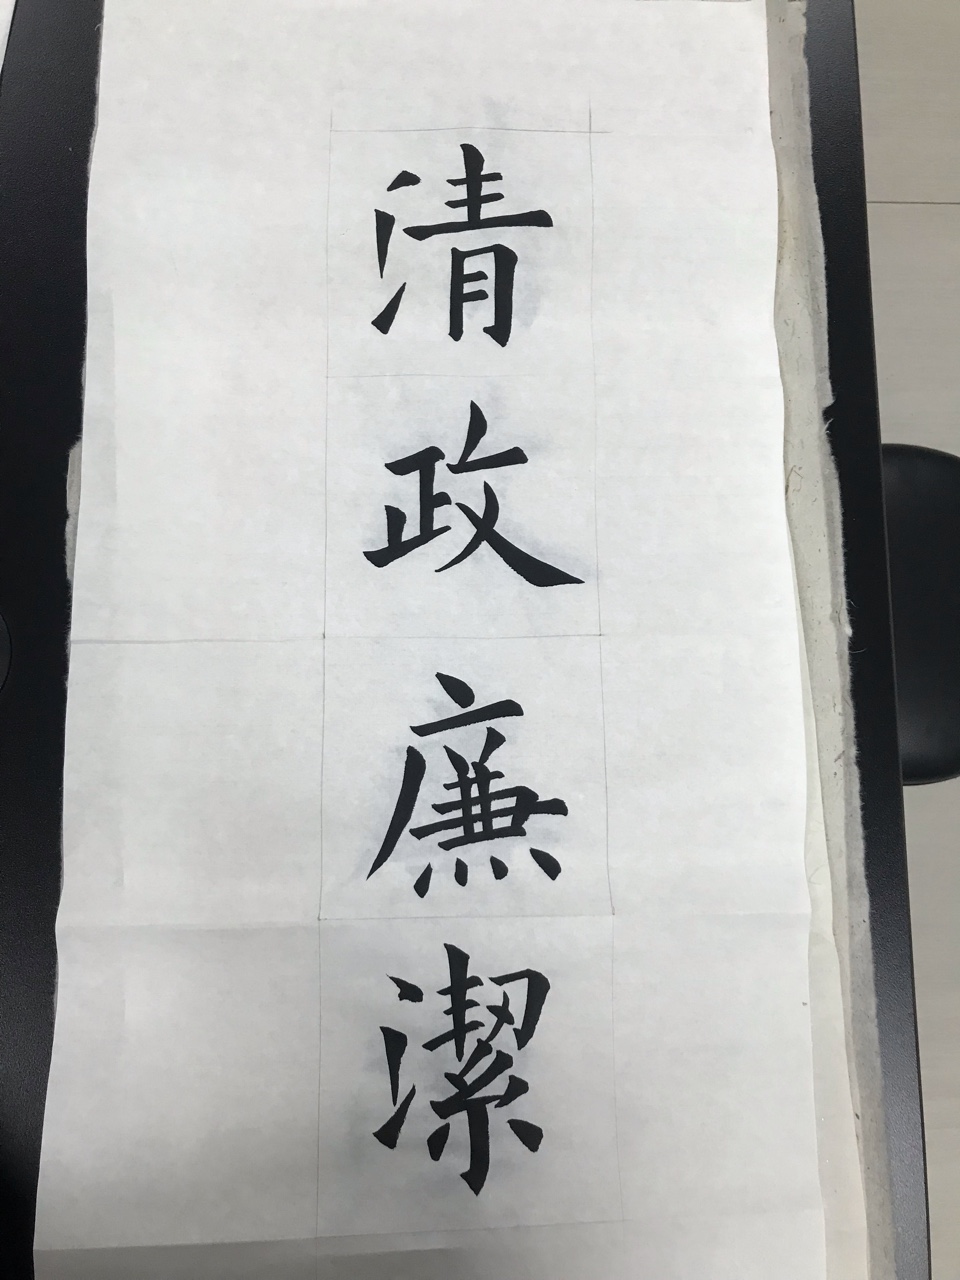 清政廉潔